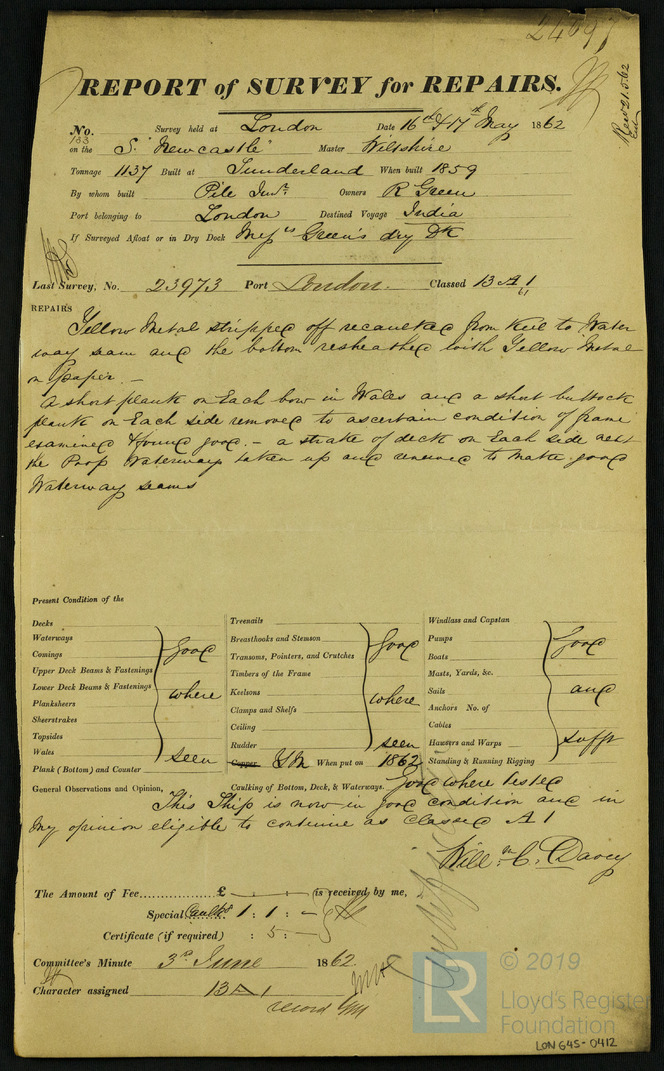 24697
REPORT of SURVEY for REPAIRS.
Rec 21.5.62
No. 163 Survey held at London Date 16th & 17th May 1862
on the S. "Newcastle" Master Wiltshire
Tonnage 1137 Built at Sunderland When built 1859
By whom built Pile Junr. Owners R Green
Port belonging to London Destined Voyage India
If Surveyed Afloat or in Dry Dock Messrs Green's dry Dk
Last Survey, No. 23973 Port London. Classed 13 A 1
REPAIRS
Yellow Metal stripped off recaulked from Keel to Water
way seam and the bottom resheathed with Yellow Metal
on paper. —
A short plank on Each bow in Wales and a short buttock
plank on Each side removed to ascertain condition of frame
examined & found good. — a strake of deck on Each side next
the Poop Waterways taken up and renewed to make good
Waterway seams
Present Condition of the
Decks
Waterways
Comings
Upper Deck Beams & Fastenings
Lower Deck Beams & Fastenings
Planksheers
Sheerstrakes
Topsides
Wales
Plank (Bottom) and Counter
good
where
seen
Treenails
Breasthooks and Stemson
Transoms, Pointers, and Crutches
Timbers of the Frame
Keelsons
Clamps and Shelfs
Ceiling
Rudder
good
where
seen
Copper YM When put on 1862
Windlass and Capstan
Pumps
Boats
Masts, Yards, &c.
Sails
Anchors No. of
Cables
Hawsers and Warps
Standing & Running Rigging
good
and
sufft
General Observations and Opinion, Caulking of Bottom, Deck, & Waterways. Good where tested
This Ship is now in good condition and in
my opinion eligible to continue as classed A 1
Willm. C. Davey
The Amount of Fee............... £ — : — : — (is received by me,
Special Caulkg 1 : 1 : —
Certificate (if required) : 5 : —
Committee's Minute 3rd June 1862.
Character assigned 13 A 1
record YM
LR
© 2019
Lloyd's Register
Foundation
LON 645-0412